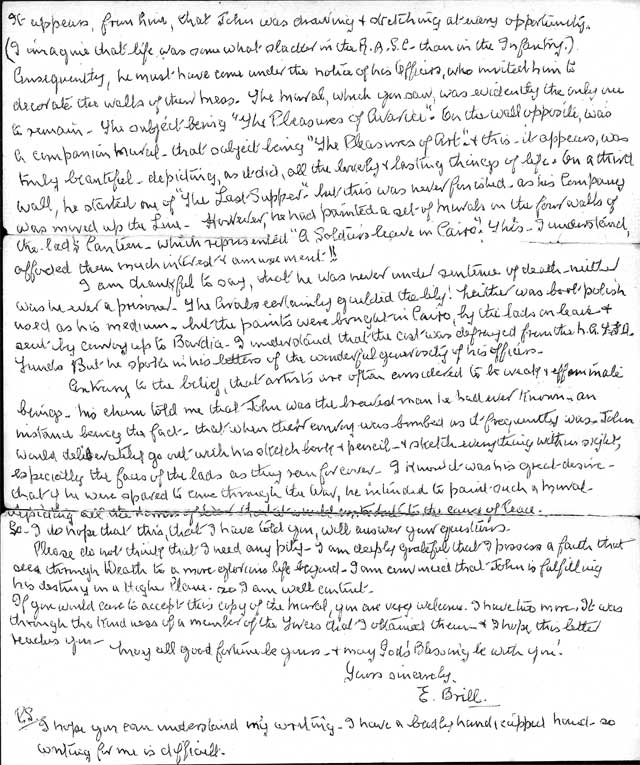 It appears, from him, that John was drawing & sketching at every opportunity.
(I imagine that life was somewhat slacker in the R.A.S.C. than in the Infantry.)
Consequently, he must have come under the notice of his Officers, who invited him to
decorate the walls of their mess. The mural, which you saw, was evidently the only one
to remain - The subject being "The Pleasures of Avarice". On the wall opposite, was
a companion mural - that subject being "The Pleasures of Art" & this - it appears, was
truly beautiful - depicting, as it did, all the lovely & lasting things of life. On a third
wall, he started one of "The Last Supper" - but this was never finished - as his Company
was moved up the Line - However, he had painted a set of murals on the four walls of
the lad's Canteen - which represented "A Soldiers leave in Cairo". This - I understand,
afforded them much interest & amusement!!
I am thankful to say, that he was never under sentence of death - neither
was he ever a prisoner. The Arabs certainly guilded the lily! Neither was boot polish
used as his medium - but the paints were bought in Cairo, by the lads on leave - &
sent by convoy up to Bardia - I understand that the cost was defrayed from the
funds But he spoke in his letters of the wonderful generosity of his officers.
Contrary to the belief, that artists are often considered to be weak & effeminate
beings - his chum told me that John was the bravest man he had ever known - an
instance being the fact - that when their convoy was bombed as it frequently was - John
would deliberately go out with his sketch book & pencil - & sketch everything within sight,
especially the faces of the lads as they ran for cover - I know it was his great desire -
that if he were spared to come through the War, he intended to paint such a mural -
depicting all the horrors of War that would to the cause of Peace.
So - I do hope that this, that I have told you, will answer your questions.
Please do not think that I need any pity - I am deeply grateful that I possess a faith that
sees through Death to a more glorious life beyond - I am convinced that John is fulfilling
his destiny in a Higher Plane. so I am well content -
If you would care to accept this copy of the mural, you are very welcome. I have two more. It was
through the kindness of a member of the Forces did I obtained them - & I hope this letter
reaches you - May all good fortune be yours - & may God's Blessing be with you!
Yours sincerely.
E. Brill.
P.S. I hope you can understand my writing - I have a badly handicapped hand - so
writing for me is difficult.